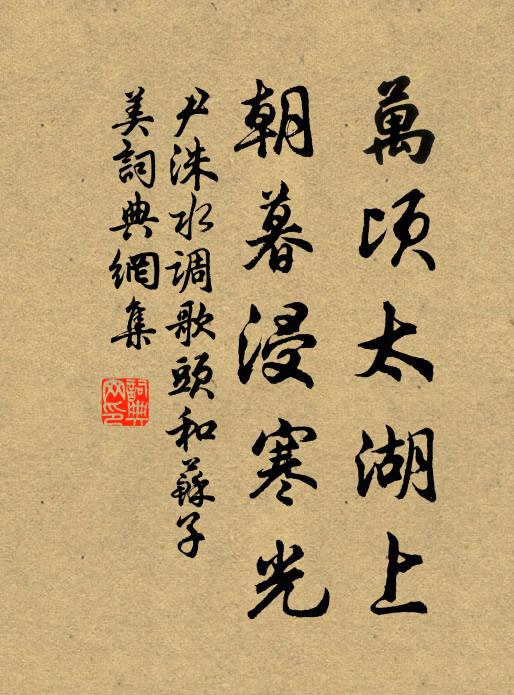 萬頃太湖上
朝暮浸寒光
尹洙水调歌頭和蘇子
美詞典網集
詞典
网印